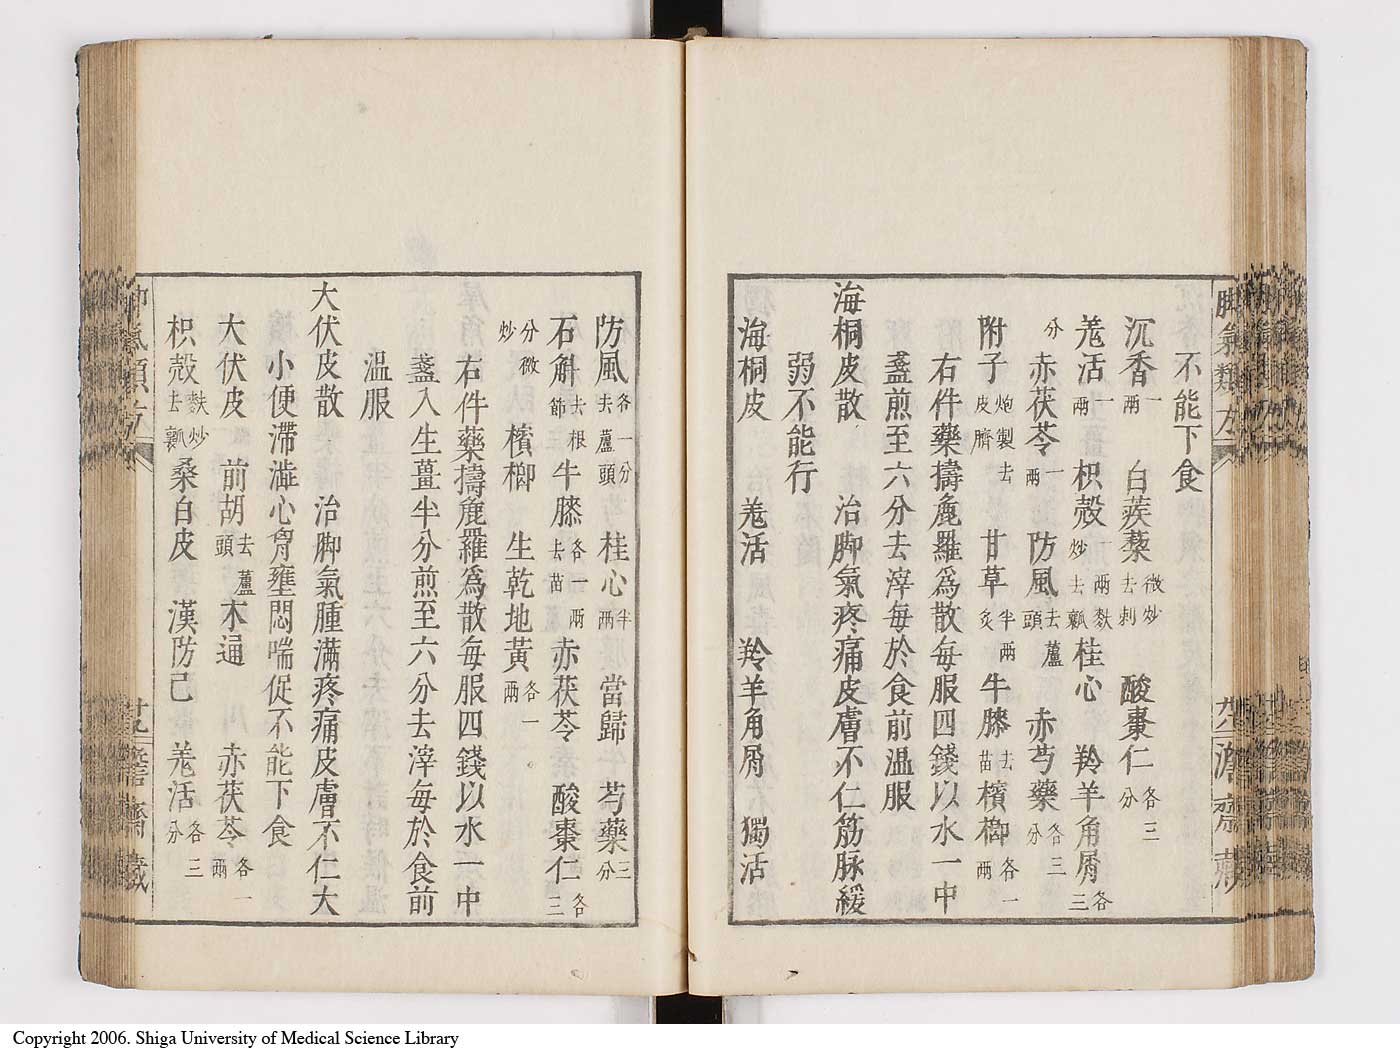 不能下食
沉香一兩 白蒺藜微炒去刺 酸棗仁各三分
羗活一兩 枳殼一兩麩炒去瓤 桂心 羚羊角屑各三
分 赤茯苓一兩 防風去蘆頭 赤芍藥各三分
附子炮製去皮臍 甘草半兩炙 牛膝去苗 檳榔各一兩
右件藥擣麄羅爲散每服四錢以水一中
盞煎至六分去滓每於食前溫服
海桐皮散 治脚氣疼痛皮膚不仁筋脉緩
弱不能行
海桐皮 羗活 羚羊角屑 獨活
防風各一分去蘆頭 桂心半兩 當歸 芍藥三分
石斛去根節 牛膝各一兩去苗 赤茯苓 酸棗仁各三
分微炒 檳榔 生乾地黃各一兩
右件藥擣麄羅爲散每服四錢以水一中
盞入生薑半分煎至六分去滓每於食前
溫服
大伏皮散 治脚氣腫滿疼痛皮膚不仁大
小便滯澁心胷壅悶喘促不能下食
大伏皮 前胡去蘆頭 木通 赤茯苓各一兩
枳殼麩炒去瓤 桑白皮 漢防己 羗活各三分
脚氣類方
Copyright 2006. Shiga University of Medical Science Library